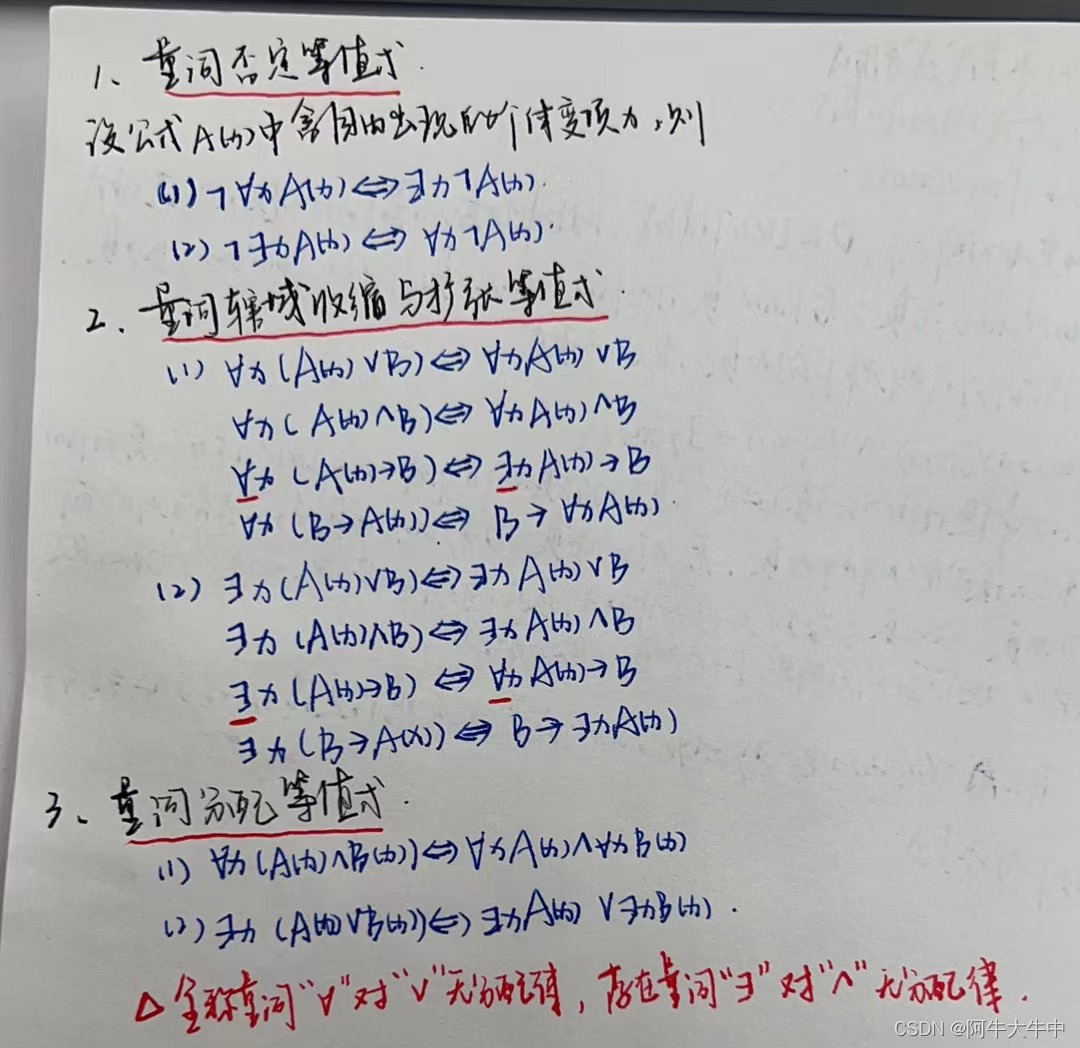 1、量词否定等值式.
设公式A(x)中含自由出现的个体变项x,则
(1)¬∀xA(x)⇔∃x¬A(x).
(2)¬∃xA(x)⇔∀x¬A(x).
2、量词辖域收缩与扩张等值式.
(1) ∀x(A(x)∨B)⇔∀xA(x)∨B
∀x(A(x)∧B)⇔∀xA(x)∧B
∀x(A(x)→B)⇔∃xA(x)→B
∀x(B→A(x))⇔B→∀xA(x)
(2) ∃x(A(x)∨B)⇔∃xA(x)∨B
∃x(A(x)∧B)⇔∃xA(x)∧B
∃x(A(x)→B)⇔∀xA(x)→B
∃x(B→A(x))⇔B→∃xA(x)
3、量词分配等值式.
(1) ∀x(A(x)∧B(x))⇔∀xA(x)∧∀xB(x)
(2)∃x(A(x)∨B(x))⇔∃xA(x)∨∃xB(x).
△全称量词"∀"对"∨"无分配律,存在量词"∃"对"∧"无分配律.
CSDN @阿牛大牛中